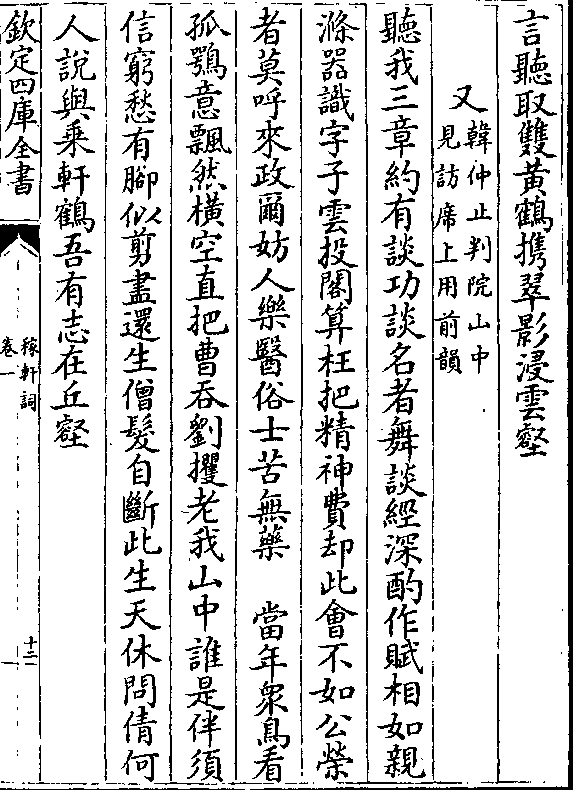 言聽取雙黃鶴携翠影浸雲壑
又韓仲止判院山中
見訪席上用前韻
聽我三章約有談功談名者舞談經深酌作賦相如親
滌器識字子雲投閣算枉把精神費却此會不如公榮
者莫呼來政爾妨人樂醫俗士苦無藥　當年衆鳥看
孤鶚意飄然橫空直把曹吞劉攫老我山中誰是伴須
信窮愁有腳似剪盡還生僧髮自斷此生天休問倩何
人說與乘軒鶴吾有志在丘壑
欽定四庫全書
稼軒詞
卷一
十三